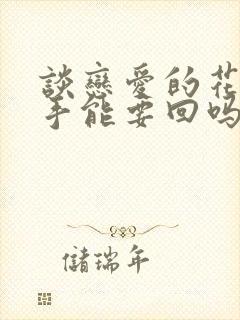 談戀愛的花
手能要回嗎
儲瑞年